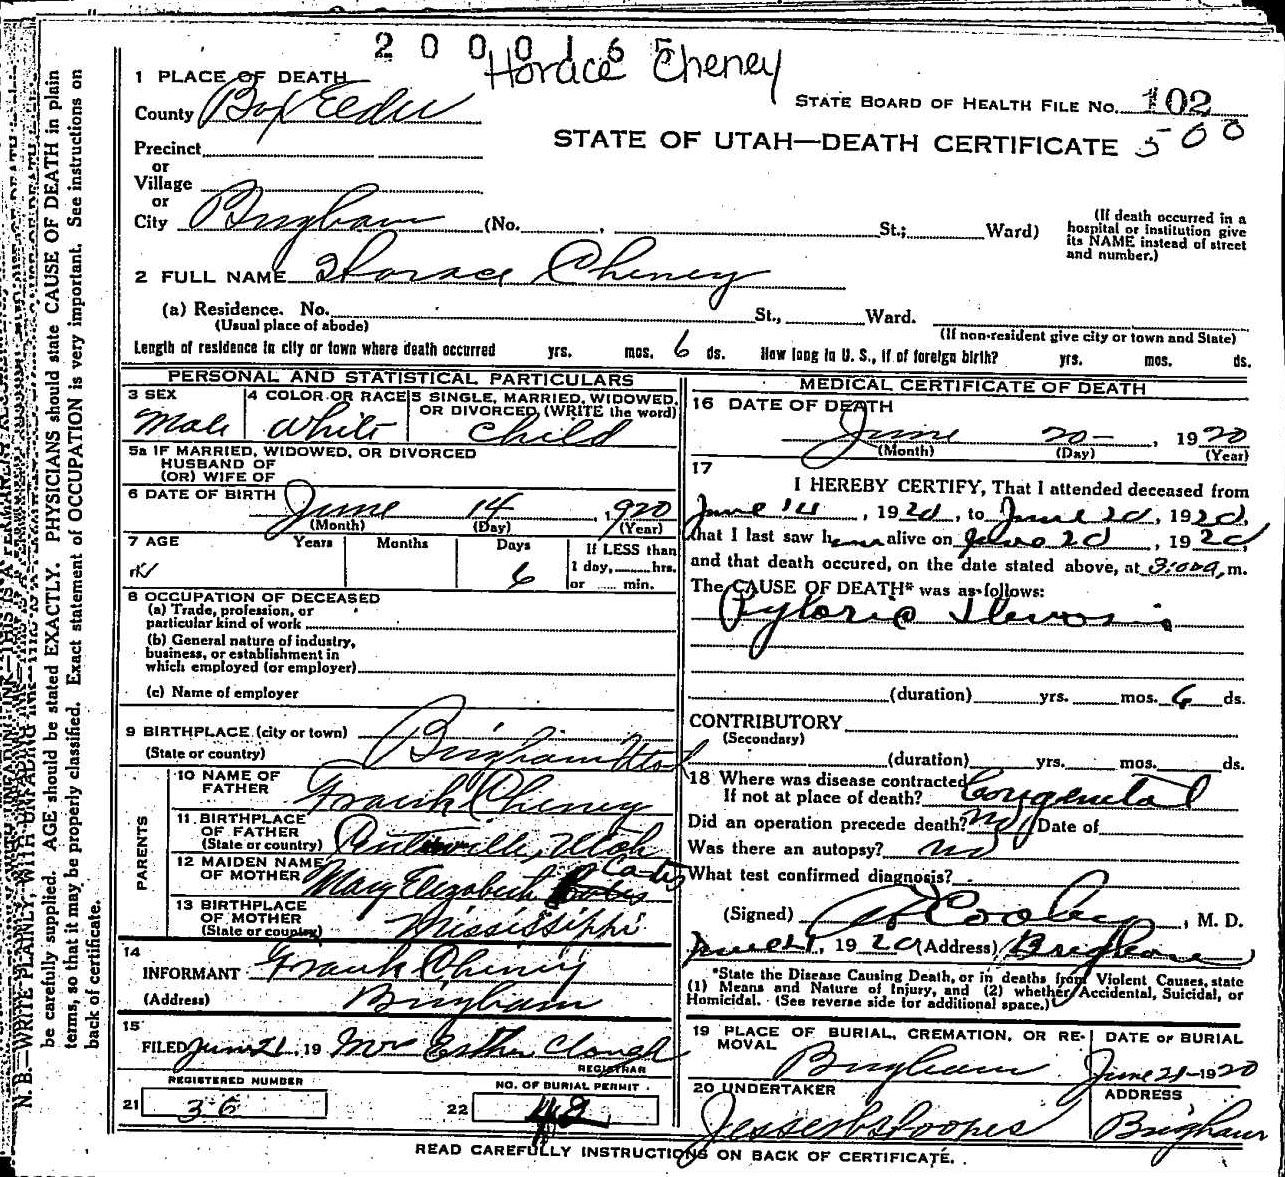 2 0 0 0 1 6 5
Horace Cheney
1 PLACE OF DEATH
County Box Elder
STATE BOARD OF HEALTH FILE NO. 102
STATE OF UTAH—DEATH CERTIFICATE 500
Precinct
or
Village
or
City Brigham (No. , St.; Ward)
(If death occurred in a hospital or institution give its NAME instead of street and number.)
2 FULL NAME Horace Cheney
(a) Residence. No. St., Ward.
(Usual place of abode) (If non-resident give city or town and State)
Length of residence in city or town where death occurred yrs. mos. 6 ds. How long in U. S., if of foreign birth? yrs. mos. ds.
PERSONAL AND STATISTICAL PARTICULARS
3 SEX 4 COLOR OR RACE 5 SINGLE, MARRIED, WIDOWED,
OR DIVORCED (WRITE the word)
Male White Child
5a IF MARRIED, WIDOWED, OR DIVORCED
HUSBAND OF
(OR) WIFE OF
6 DATE OF BIRTH June 14, 1920
(Month) (Day) (Year)
7 AGE Years Months Days If LESS than
1 day, hrs.
6 or min.
8 OCCUPATION OF DECEASED
(a) Trade, profession, or
particular kind of work
(b) General nature of industry,
business, or establishment in
which employed (or employer)
(c) Name of employer
9 BIRTHPLACE (city or town)
(State or country) Brigham Utah
PARENTS
10 NAME OF
FATHER Frank Cheney
11 BIRTHPLACE
OF FATHER
(State or country) Centerville, Utah
12 MAIDEN NAME
OF MOTHER Mary Elizabeth Cates
13 BIRTHPLACE
OF MOTHER
(State or country) Mississippi
14
INFORMANT Frank Cheney
(Address) Brigham
15
FILED June 21, 19 Mrs Esther Clough
REGISTRAR
REGISTERED NUMBER NO. OF BURIAL PERMIT
21 36 22 42
MEDICAL CERTIFICATE OF DEATH
16 DATE OF DEATH
June 20-, 1920
(Month) (Day) (Year)
17
I HEREBY CERTIFY, That I attended deceased from
June 14, 1920, to June 20, 1920,
that I last saw him alive on June 20, 1920,
and that death occured, on the date stated above, at 3:00 a, m.
The CAUSE OF DEATH* was as follows:
Pyloric Stenosis
(duration) yrs. mos. 6 ds.
CONTRIBUTORY
(Secondary)
(duration) yrs. mos. ds.
18 Where was disease contracted
If not at place of death? Congenital
Did an operation precede death? No Date of
Was there an autopsy? no
What test confirmed diagnosis?
(Signed) Cooley, M. D.
June 21, 1920 (Address) Brigham
*State the Disease Causing Death, or in deaths from Violent Causes, state
(1) Means and Nature of Injury, and (2) whether Accidental, Suicidal, or
Homicidal. (See reverse side for additional space.)
19 PLACE OF BURIAL, CREMATION, OR RE-
MOVAL DATE OF BURIAL
Brigham June 21-1920
20 UNDERTAKER ADDRESS
Brigham
READ CAREFULLY INSTRUCTIONS ON BACK OF CERTIFICATE.
N. B.—WRITE PLAINLY, WITH UNFADING INK—THIS IS A PERMANENT
be carefully supplied. AGE should be stated EXACTLY. PHYSICIANS should state CAUSE OF DEATH in plain
terms, so that it may be properly classified. Exact statement of OCCUPATION is very important. See instructions on
back of certificate.